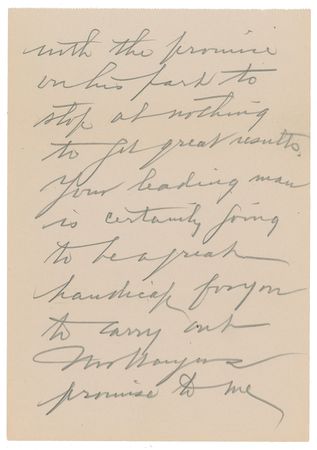 with the promise
on his part to
stop at nothing
to get great results.
Your leading man
is certainly going
to be a great
handicap for you
to carry out
promise to me